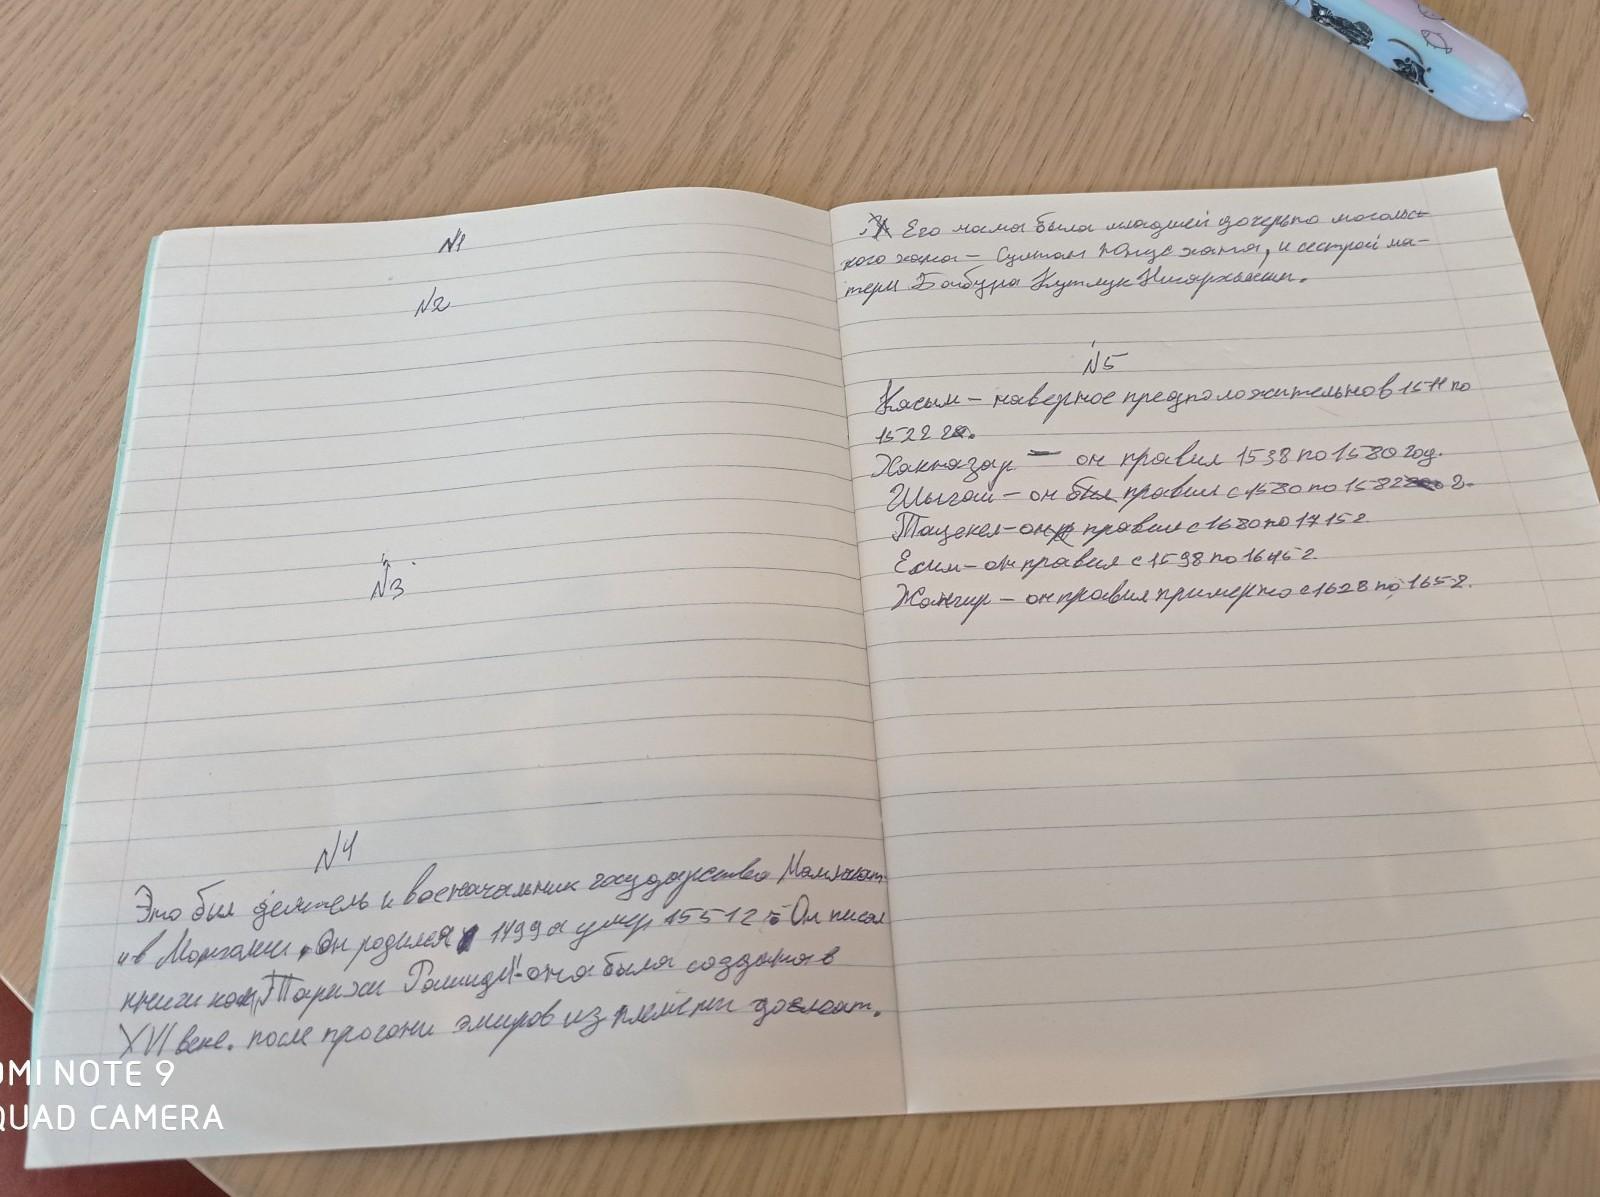 N1
N2
N3
N4
Это был деятель и военачальник государства
и в Моголии, он родился 1499 а умер 15512г Он писал
книги как "Тарихи Рашиди" - она была создана в
XVI веке. после прогони эмиров из племени доглат.
Его мама была младшей дочерью могольс-
кого хана - Султан Юнус хана, и сестрой ма-
тери Бабура Кутлук
N5
Касым - наверное предположительно в 1511 по
1522 г.
Хакназар - он правил 1538 по 1580 год.
Шыгай - он был правил с 1580 по 1582 г.
Тауекел - он правил с 1680 по 1715 г.
Есим - он правил с 1598 по 1645 г.
Жангир - он правил примерно с 1628 по 165 г.
OMI NOTE 9
QUAD CAMERA